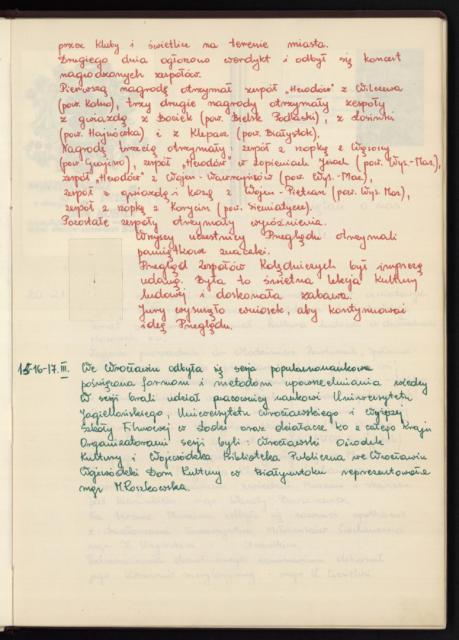 przez kluby i świetlice na terenie miasta.
Drugiego dnia ogłoszono werdykt i odbył się koncert
nagrodzonych zespołów.
Pierwszą nagrodę otrzymał zespół „Herodów” z
(pow. Kolno), trzy drugie nagrody otrzymały zespoły
z gwiazdą z Bociek (pow. Bielsk Podlaski), z Łosinki
(pow. Hajnówka) i z Klepacz (pow. Białystok).
Nagrodę trzecią otrzymały zespół z szopką z Wąsosza
(pow. Grajewo), zespół „Herodów” w Łopieniach Jeżach (pow. Wys-Maz),
zespół „Herodów” z Wojen-Wawrzyńców (pow. Wys-Maz),
zespół z gwiazdą i kozą z Wojen-Pietrasz (pow. Wys. Maz),
zespół z szopką z Korycin (pow. Siemiatycze).
Pozostałe zespoły otrzymały wyróżnienia.
Wszyscy uczestnicy Przeglądu otrzymali
pamiątkowe znaczki.
Przegląd Zespołów Kolędniczych był imprezą
udaną. Była to świetna lekcja kultury
ludowej i doskonała zabawa.
Jury wysunęło wniosek, aby kontynuować
ideę Przeglądu.
15-16-17.III. We Wrocławiu odbyła się sesja popularnonaukowa
poświęcona formom i metodom upowszechniania wiedzy
W sesji brali udział pracownicy naukowi Uniwersytetu
Jagiellońskiego, Uniwersytetu Wrocławskiego i Wyższej
Szkoły Filmowej w Łodzi oraz działacze ko z całego kraju
Organizatorami sesji byli: Wrocławski Ośrodek
Kultury i Wojewódzka Biblioteka Publiczna we Wrocławiu
Wojewódzki Dom Kultury w Białymstoku reprezentowała
mgr M. Roszkowska.